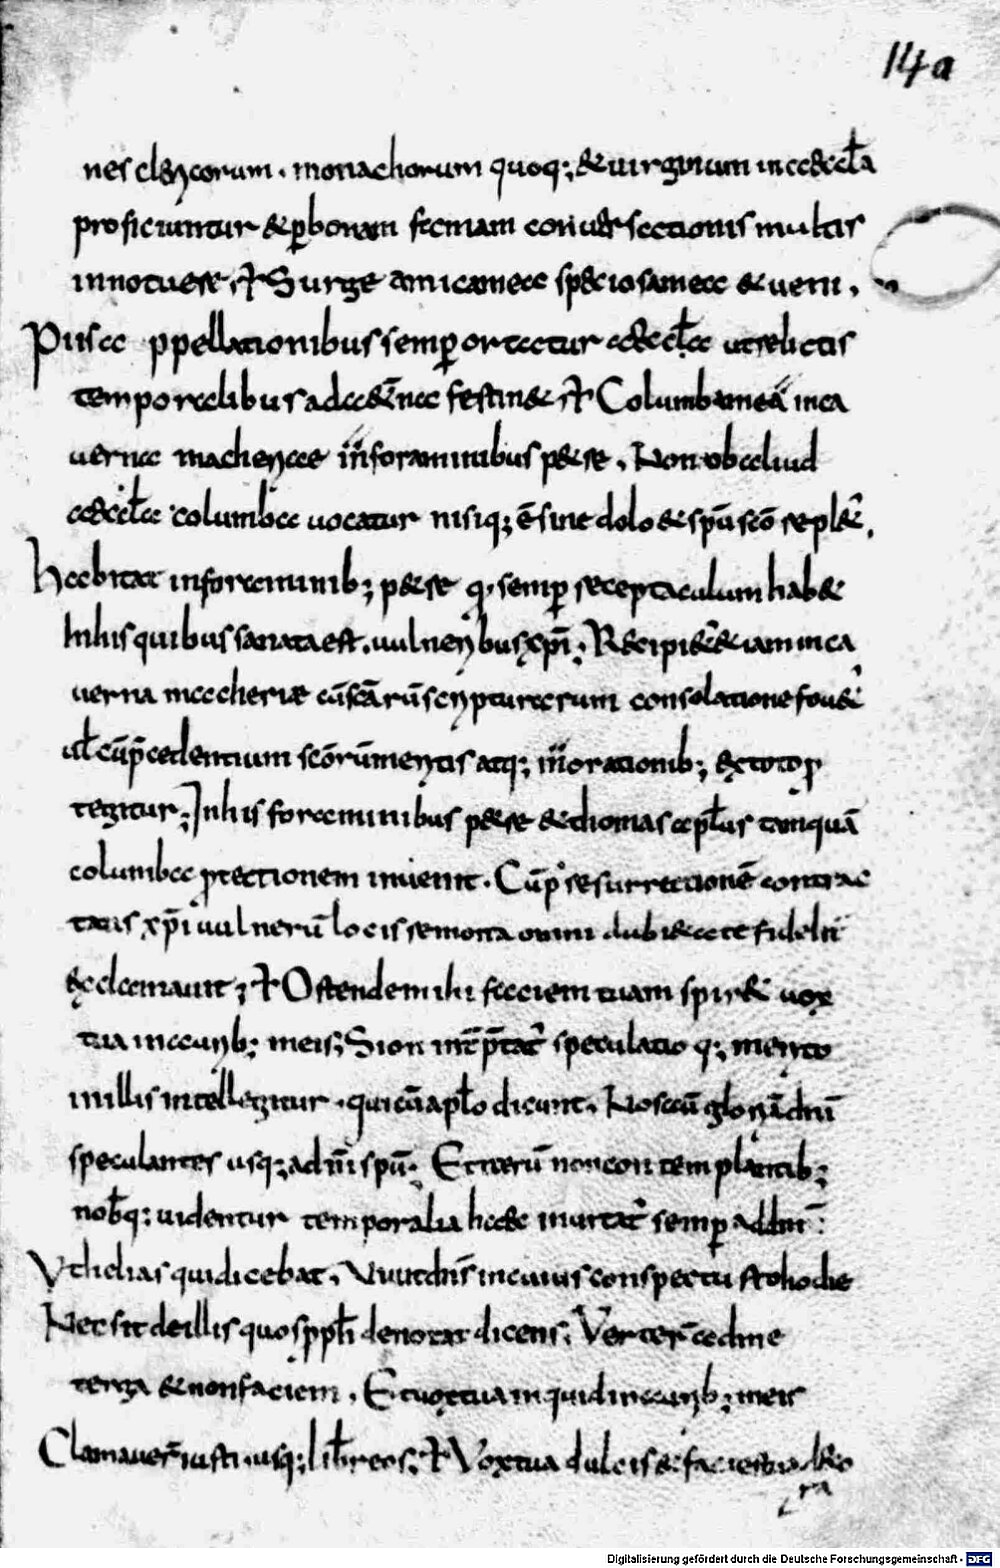 14a
nes clericorum . monachorum quoq; & uirginum in aeccl̄a
proficiuntur & p̱bonam famam conuersationis multis
innotuere, Surge amica mea speciosa mea & ueni .
Pus a ppellationibus semp̱ ortatur aeccl̄a ut relictis
temporalibus ad aet̄na festin& Columba mea in ca
uerna maceriae in foraminibus p&re . Non ob aliud
aeccl̄a columba uocatur nisi q; ē sine dolo & sp̄u sc̄o repl&ur .
Habitat in foraminib; p&re q semp̱ receptaculum hab&
In his quibus sanata est . uulneribus xp̄i ; Recipi& & iam in ca
uerna maceheriae cū sc̄arū scripturarum consolatione fou&
ul̄ cū p̄cedentium sc̄orū meritis atq; in orationib; ex toto p
tegitur ; In his foraminibus p&re & thomas apl̄us tanquā
columba ptectionem inuenit . Cū p resurrectionē contrac
tatis xp̄i uulnerū locis remota omni dubi&ate fideli
exclamauit ; Ostende mihi faciem tuam spir& uox
tua in aurib; meis ; Sion int̄p̄tat̄ speculatio q; merito
in illis intellegitur . qui cū apl̄o dicunt . Nos aū gloriā dn̄i
speculantes usq; ad dn̄i sp̄u ; Et uerū non contemplantib;
nobq; uidentur temporalia haec inuitat̄ semp̱ ad dn̄m :
Vt helias qui dicebat . Viuit dn̄s in cuius conspectu sto hodie
Nec sit de illis quos pph̄ denotat dicens ; Verter̄ ad me
terga & non faciem . Et uox tua inquid in aurib; meis
Clamauer̄ iusti . usq; lib̄ eos ; Vox tua dulcis & facies tua deco
ra
Digitalisierung gefördert durch die Deutsche Forschungsgemeinschaft - DFG